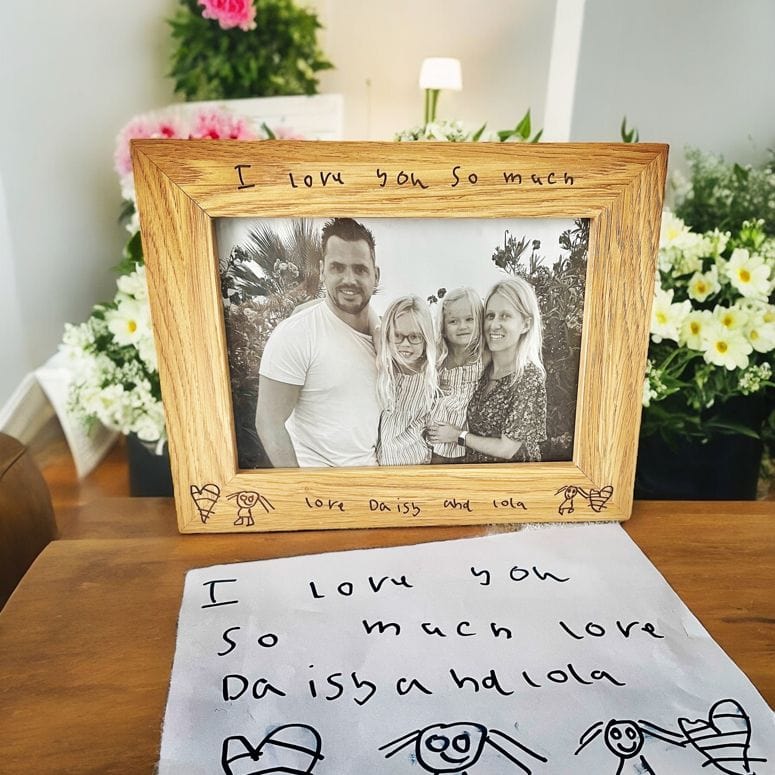 I love you so much
love Daisy and lola
I love you
so much love
Daisy and lola